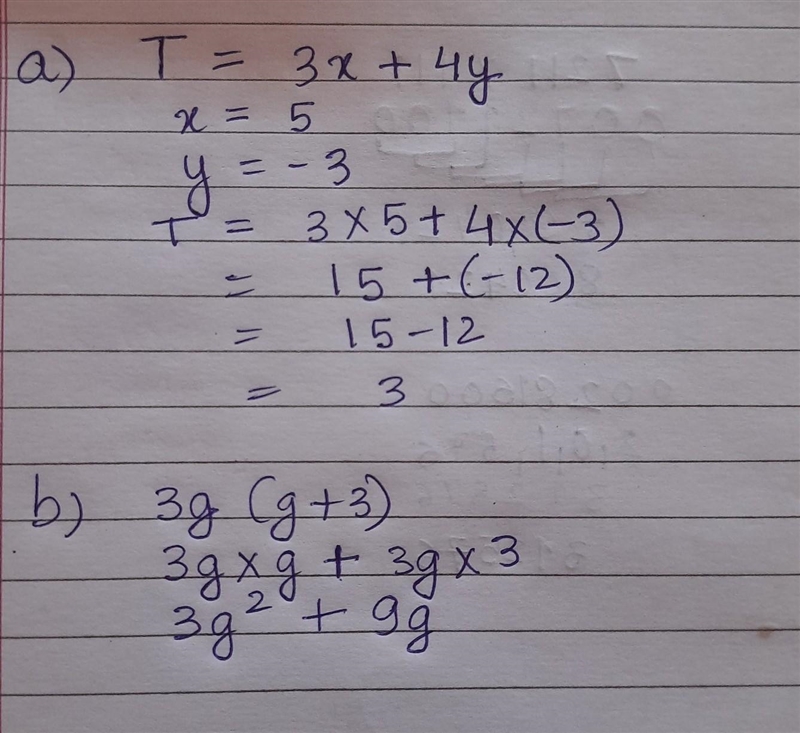 a) T = 3x + 4y
x = 5
y = -3
T = 3 × 5 + 4 × (-3)
= 15 + (-12)
= 15 - 12
= 3
b) 3g (g + 3)
3g × g + 3g × 3
3g² + 9g